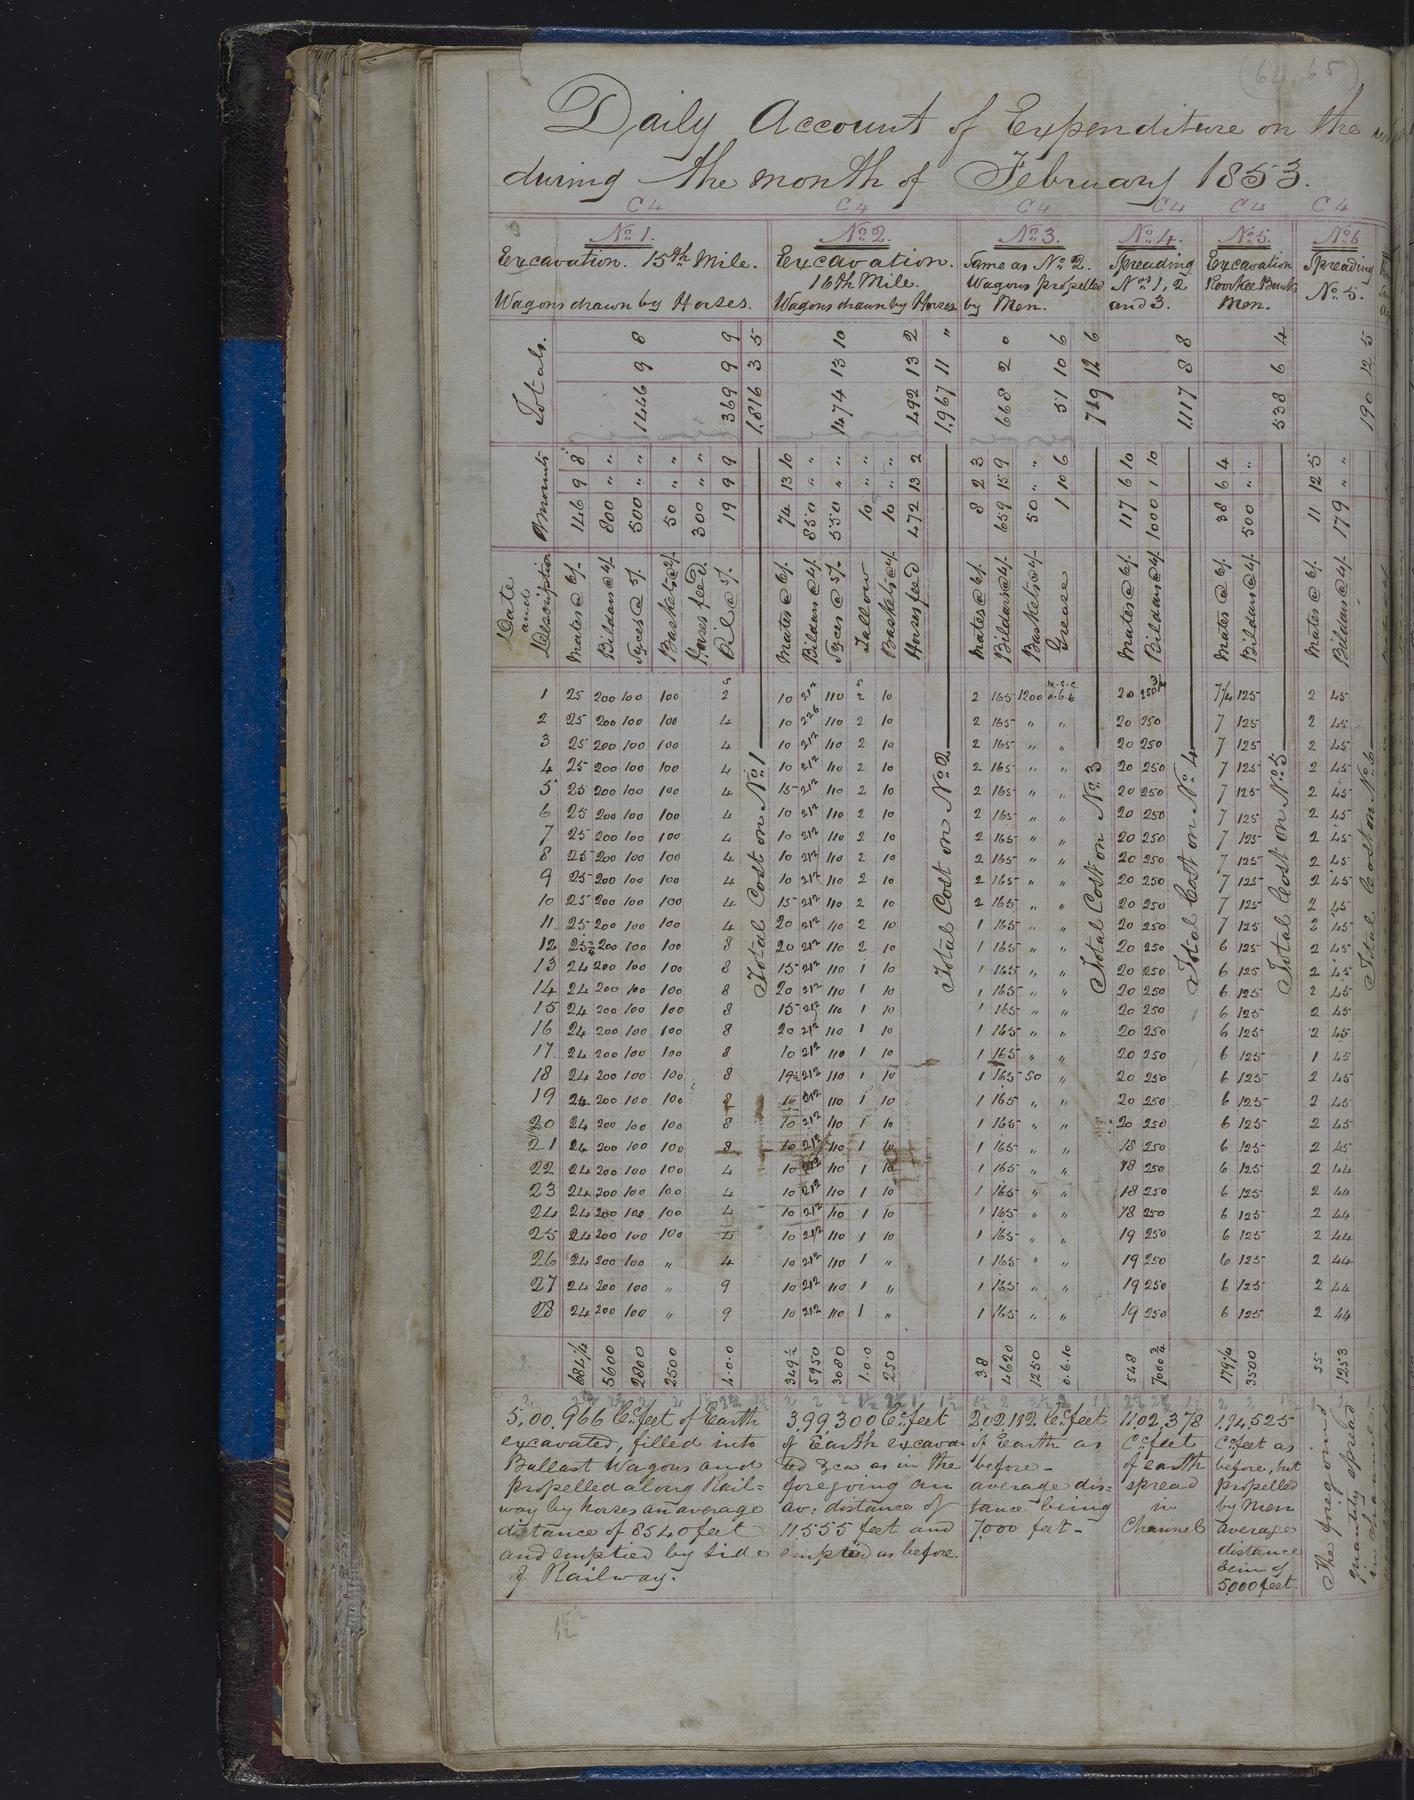 (64,65)
Daily Account of Expenditure on the
during the month of February 1853.
C4 C4 C4 C4 C4 C4
No. 1. No. 2. No. 3. No. 4. No. 5. No. 6
Excavation. 15th Mile.
Wagons drawn by Horses.
Excavation.
16th Mile.
Wagons drawn by Horses
Same as No. 2.
Wagons propelled
by Men.
Spreading
Nos 1, 2
and 3.
Excavation
Men.
Spreading
No. 5.
Totals.
1446 9 8
369 9 9
1,816 3 5
1474 13 10
492 13 2
1,967 11 "
668 2 0
51 10 6
719 12 6
1,117 8 8
538 6 4
190 12 5
Amounts
146 9 8
800 " "
500 " "
50 " "
300 " "
19 9 9
74 13 10
850 " "
550 " "
10 " "
10 " "
472 13 2
8 2 3
659 15 9
50 " "
1 10 6
117 6 10
1000 1 10
38 6 4
500 " "
11 12 5
179 " "
Date
and
Description
Mates @ 6/.
Bildars @ 4/.
Syces @ 5/.
Baskets @ 2/.
Horses feed.
Oil @ 5/.
Mates @ 6/.
Bildars @ 4/.
Syces @ 5/.
Tallow
Baskets @ 4/.
Horses feed
Mates @ 6/.
Bildars @ 4/.
Baskets @ 4/.
Grease
Mates @ 6/.
Bildars @ 4/.
Mates @ 6/.
Bildars @ 4/.
Mates @ 6/.
Bildars @ 4/.
1 25 200 100 100 2 10 212 110 2 10 2 165 1200 0.6.6 20 250 3/4 7 1/4 125 2 45
2 25 200 100 100 4 10 226 110 2 10 2 165 " " 20 250 7 125 2 45
3 25 200 100 100 4 10 212 110 2 10 2 165 " " 20 250 7 125 2 45
4 25 200 100 100 4 10 212 110 2 10 2 165 " " 20 250 7 125 2 45
5 25 200 100 100 4 15 212 110 2 10 2 165 " " 20 250 7 125 2 45
6 25 200 100 100 4 10 212 110 2 10 2 165 " " 20 250 7 125 2 45
7 25 200 100 100 4 10 212 110 2 10 2 165 " " 20 250 7 125 2 45
8 25 200 100 100 4 10 212 110 2 10 2 165 " " 20 250 7 125 2 45
9 25 200 100 100 4 10 212 110 2 10 2 165 " " 20 250 7 125 2 45
10 25 200 100 100 4 15 212 110 2 10 2 165 " " 20 250 7 125 2 45
11 25 200 100 100 4 20 212 110 2 10 1 165 " " 20 250 7 125 2 45
12 25 1/4 200 100 100 8 20 212 110 2 10 1 165 " " 20 250 6 125 2 45
13 24 200 100 100 8 15 212 110 1 10 1 165 " " 20 250 6 125 2 45
14 24 200 100 100 8 20 212 110 1 10 1 165 " " 20 250 6 125 2 45
15 24 200 100 100 8 15 212 110 1 10 1 165 " " 20 250 6 125 2 45
16 24 200 100 100 8 20 212 110 1 10 1 165 " " 20 250 6 125 2 45
17 24 200 100 100 8 10 212 110 1 10 1 165 " " 20 250 6 125 1 45
18 24 200 100 100 8 19 1/2 212 110 1 10 1 165 50 " 20 250 6 125 2 45
19 24 200 100 100 8 10 212 110 1 10 1 165 " " 20 250 6 125 2 45
20 24 200 100 100 8 10 212 110 1 10 1 165 " " 20 250 6 125 2 45
21 24 200 100 100 8 10 212 110 1 10 1 165 " " 18 250 6 125 2 45
22 24 200 100 100 4 10 212 110 1 10 1 165 " " 18 250 6 125 2 44
23 24 200 100 100 4 10 212 110 1 10 1 165 " " 18 250 6 125 2 44
24 24 200 100 100 4 10 212 110 1 10 1 165 " " 18 250 6 125 2 44
25 24 200 100 100 4 10 212 110 1 10 1 165 " " 19 250 6 125 2 44
26 24 200 100 " 4 10 212 110 1 " 1 165 " " 19 250 6 125 2 44
27 24 200 100 " 9 10 212 110 1 " 1 165 " " 19 250 6 125 2 44
28 24 200 100 " 9 10 212 110 1 " 1 165 " " 19 250 6 125 2 44
Total Cost on No. 1
Total Cost on No. 2
Total Cost on No. 3
Total Cost on No. 4
Total Cost on No. 5
Total Cost on No. 6
684 1/4 5600 2800 2500 4.0.0 349 1/2 5950 3080 1.0.0 250 38 4620 1250 0.6.10 548 7000 3/4 179 1/4 3500 55 1253
5,00,966 Cc. feet of Earth
excavated, filled into
Ballast Wagons and
propelled along Rail=
way by horses an average
distance of 8540 feet
and emptied by side
of Railway.
3,99,300 Cc. feet
of Earth excava
ted &ca as in the
foregoing an
av: distance of
11,555 feet and
emptied as before.
2,02,112 Cc. feet
of Earth as
before -
average dis=
tance being
7,000 feet -
11,02,378
Cc feet
of earth
spread
in
Channels
1,94,525
Cc. feet as
before, but
propelled
by Men
average
distance
being
5,000 feet.
The foregoing
quantity spread
in channels.